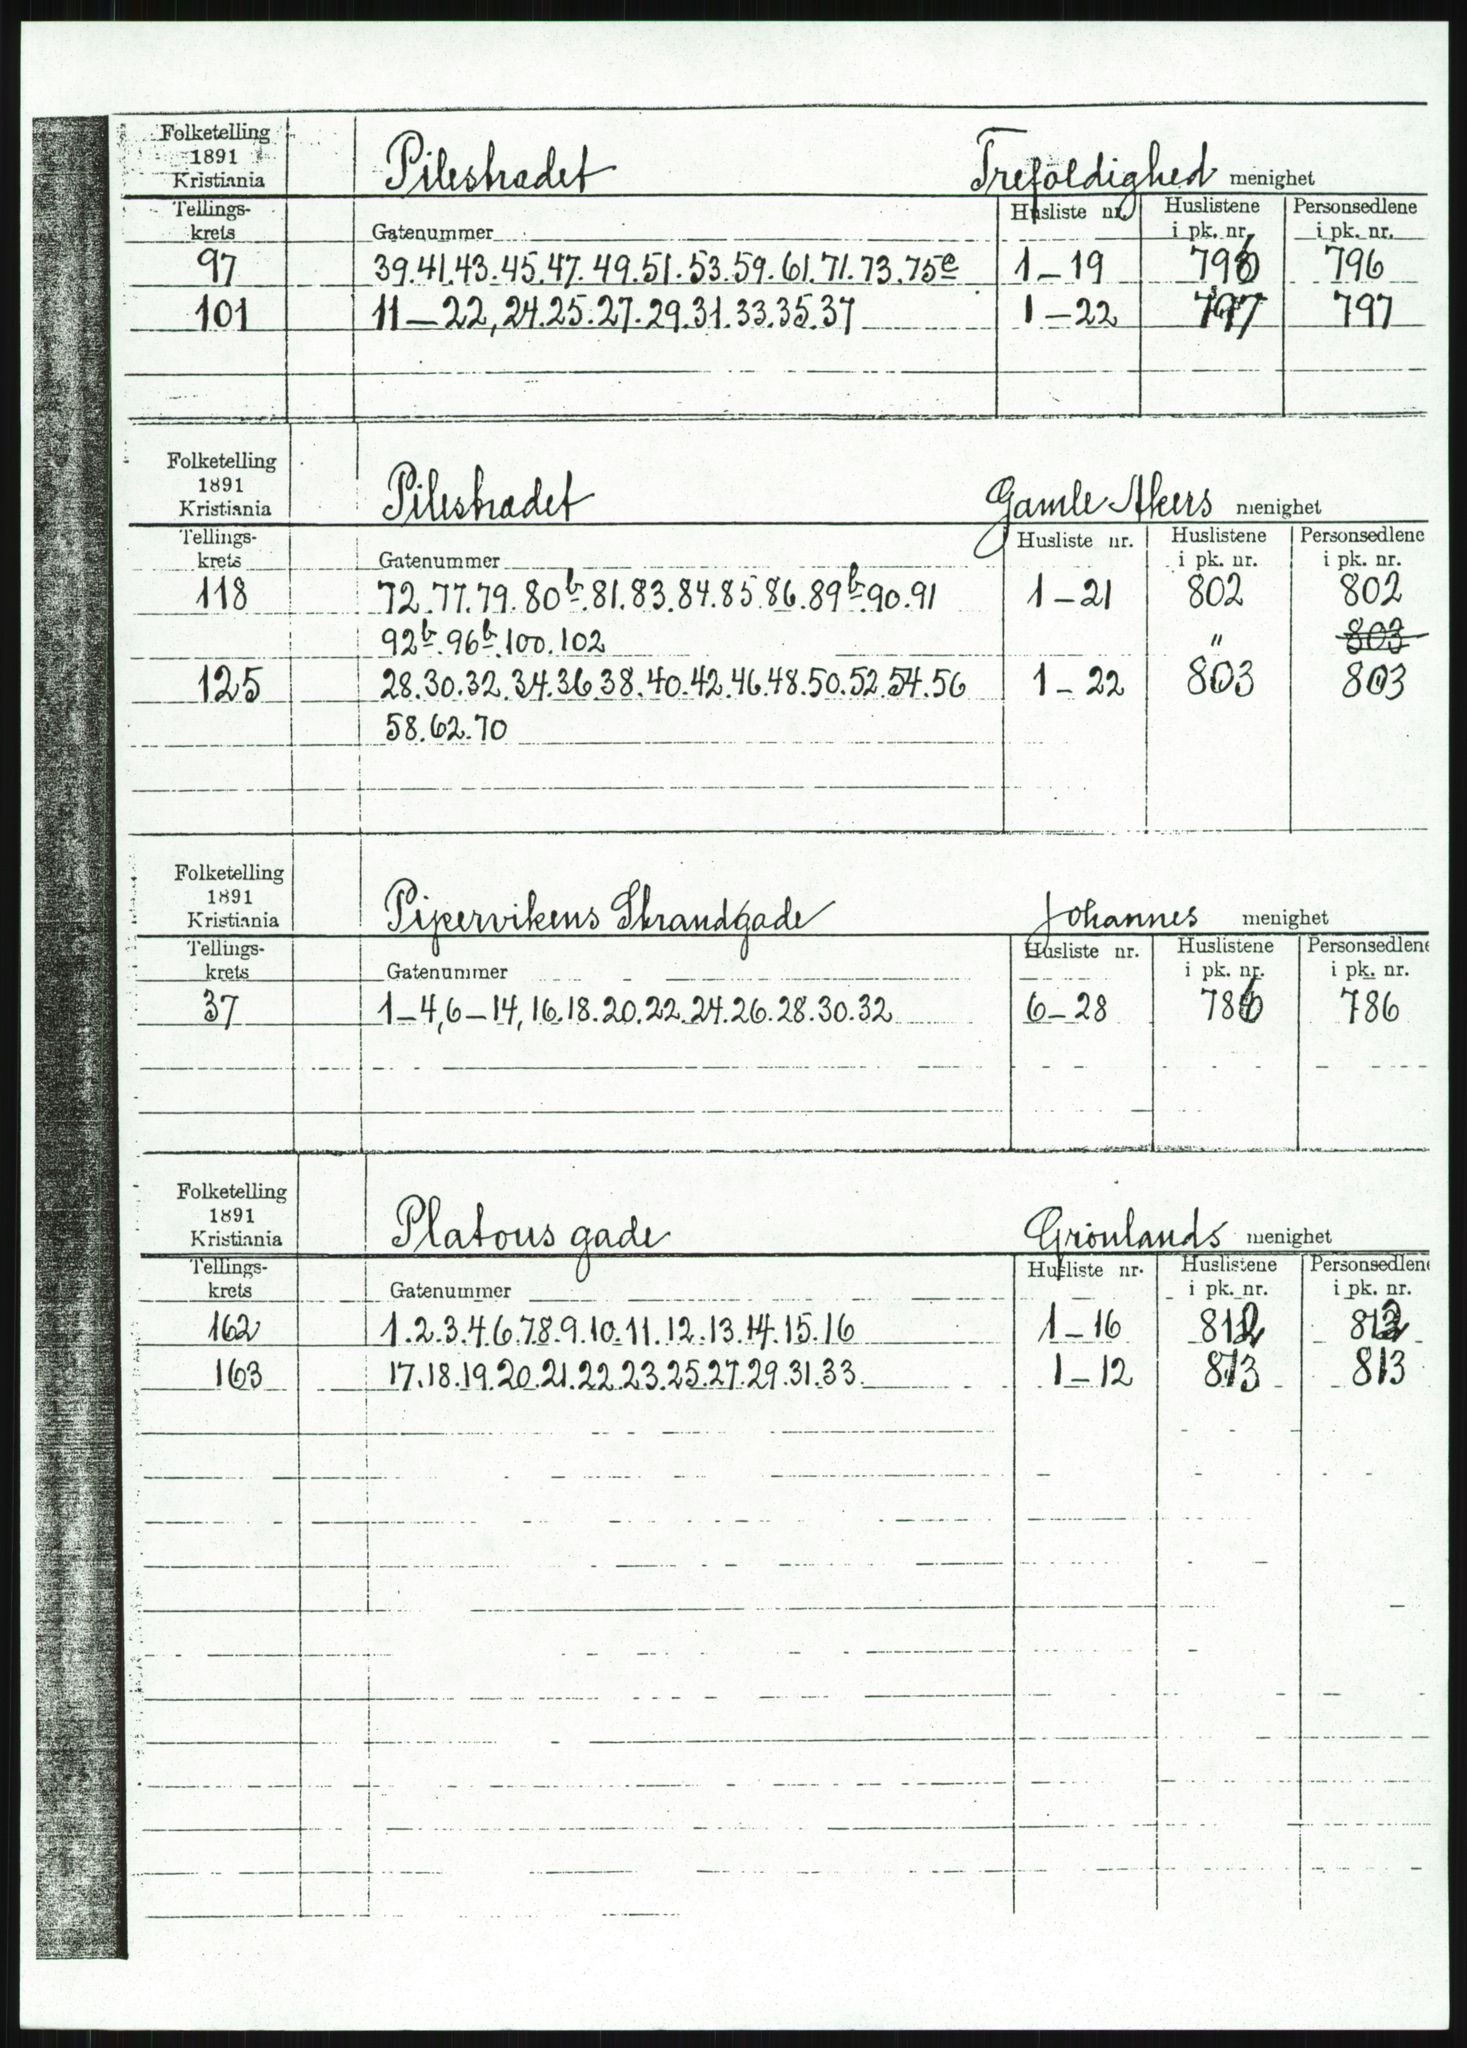 Folketelling
1891
Kristiania
Pilestrædet
Trefoldighed menighet
Tellings-
krets
Gatenummer
Husliste nr.
Huslistene
i pk. nr.
Personsedlene
i pk. nr.
97 39.41.43.45.47.49.51.53.59.61.71.73.75e 1–19 796 796
101 11–22, 24.25.27.29.31.33.35.37 1–22 797 797
Folketelling
1891
Kristiania
Pilestrædet
Gamle Akers menighet
Tellings-
krets
Gatenummer
Husliste nr.
Huslistene
i pk. nr.
Personsedlene
i pk. nr.
118 72.77.79.80b.81.83.84.85.86.89b.90.91 1–21 802 802
92b.96b.100.102 " 803
125 28.30.32.34.36.38.40.42.46.48.50.52.54.56 1–22 803 803
58.62.70
Folketelling
1891
Kristiania
Pipervikens Strandgade
Johannes menighet
Tellings-
krets
Gatenummer
Husliste nr.
Huslistene
i pk. nr.
Personsedlene
i pk. nr.
37 1–4, 6–14, 16.18.20.22.24.26.28.30.32 6–28 786 786
Folketelling
1891
Kristiania
Platous gade
Grønlands menighet
Tellings-
krets
Gatenummer
Husliste nr.
Huslistene
i pk. nr.
Personsedlene
i pk. nr.
162 1.2.3.4.6.7.8.9.10.11.12.13.14.15.16 1–16 812 812
163 17.18.19.20.21.22.23.25.27.29.31.33 1–12 813 813